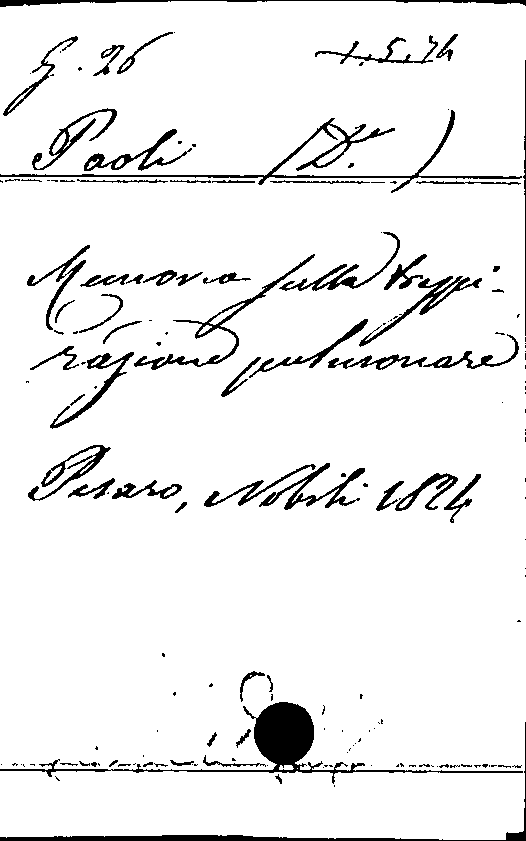 G. 26 1.5.74
Paoli (Dre)
Memoria sulla traspi-
razione pulmonare
Pesaro, Nobili 1824